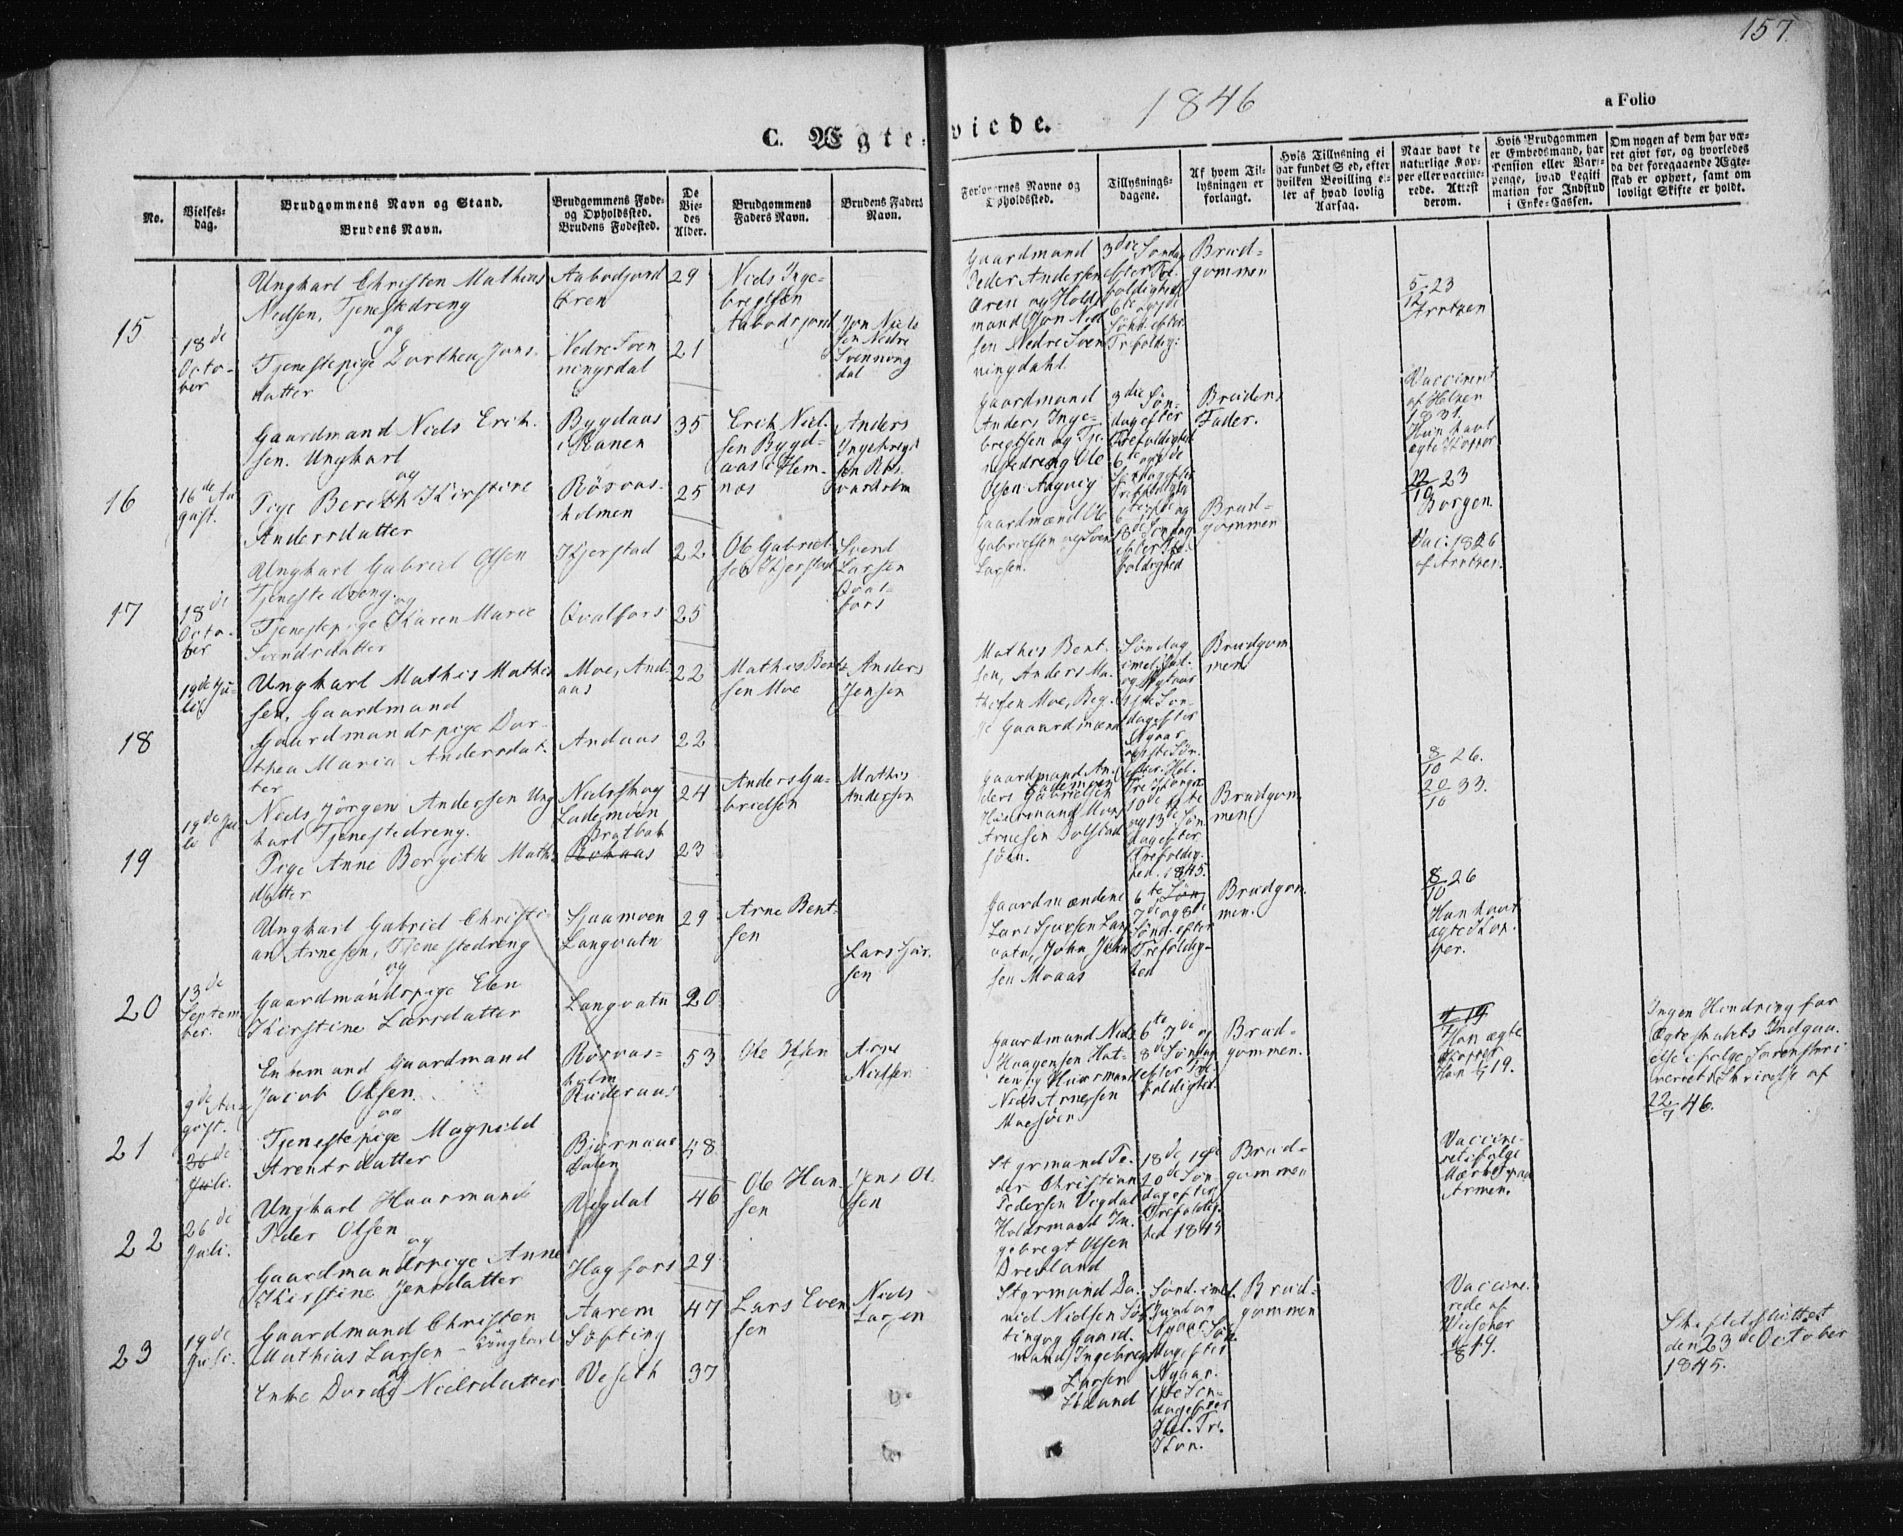 157.
1846
a Folio
C. Ægte-
viede.
No.
Vielses-
dag.
Brudgommens Navn og Stand.
Brudens Navn.
Brudgommens Føde-
og Opholdssted.
Brudens Fødested.
De
Vie-
des
Alder.
Brudgommens
Faders Navn.
Brudens Faders
Navn.
Forlovernes Navne og
Opholdssted.
Tillysnings-
dagene.
Af hvem Til-
lysningen er
forlangt.
Hvis Tillysning ei
har fundet Sed, efter
hvilken Bevilling el-
ler af hvad lovlig
Aarsag.
Naar havt de
naturlige Kop-
per eller vaccine-
rede. Attest
derom.
Hvis Brudgommen
er Embedsmand, har
Pension eller Var-
penge, hvad Legiti
mation for Indskud
i Enke-Cassen.
Om nogen af dem har væ-
ret gift før, og hvorledes
da det foregaaende Ægte-
skab er ophørt, samt om
lovligt Skifte er holdt.
15
18de
Octo-
ber
Ungkarl Christen Mathias
Nielsen, Tjenestedreng
og
Tjenestepige Dorthea Jons-
datter
Aabodjord
Øren
Nedre Sven
ningsdal
29
21
Niels Inge-
bregtsen
Aabodsjord
Jon Niels
sen Nedre
Svenning
dal
Gaardmand
Peder Andersen
Øren og Holds
mand Jon Niel
sen Nedre Sven
ningdahl.
3die Søndag
efter Tre-
foldighed
Brud-
gommen
5/12 23
Arntzen
16
16de Au
gust.
Gaardmand Niels Erik-
sen. Ungkarl
og
Pige Berith Kirstine
Andersdatter
Bygdaas
i Ranen
Røsvas-
holmen
35
25
Erik Niel-
sen Bygd-
aas i Hem-
næs
Anders
Ingebregt
sen Røs
vasholm
Gaardmand
Anders Inge-
bregtsen og Tje-
nestedreng Ole
Olsen Aagvig
3die Søn-
dag efter
Trefoldighed
Brudens
Fader.
Vaccineret
af Holzen
1831.
Hun havt
ægte Kopper
17
18de
Octo-
ber
Ungkarl Gabriel Olsen
Tjenestedreng
og
Tjenestepige Karen Marie
Svendsdatter
Kjerstad
Qvalfors
22
25
Ole Gabriel-
sen Kjerstad
Svend
Larsen
Qval-
fors
Gaardmænd Ole
Gabrielsen og Sven
Larsen.
Brud-
gommen
22/10 23
Borgen.
Vac: 1826
af Arntzen.
18
19de Ju-
li
Ungkarl Mathis Mathis
sen, Gaardmand
Gaardmandspige Dor-
thea Maria Andersdat-
ter
Moe, And-
aas
Andaas
22
22
Mathis Bent-
sen Moe
Anders
Jensen
Mathis Bent-
sen, Anders Ma-
thisen Moe, Beg-
ge Gaardmænd
Søndag
Brudgom
men
19
19de Ju
li
Niels Jørgen Andersen Ung
karl Tjenestedreng.
Pige Anne Bergithe Maths
datter
Nielsskog
Lademoen
Bratbak
24
23
Anders Ga-
brielsen
Mathis
Andersen
Gaardmand An-
ders Gabrielsen
Lademoen
Huusmand Mons
Arnesen Dolstad
søen.
10de 11te
og 13de Søn
dag efter
Trefoldig-
hed. 1845.
Brudgom
men
8/10 26.
20/10 33.
20
13de
Septem
ber.
Ungkarl Gabriel Christi-
an Arnesen, Tjenestedreng
og
Gaardmandspige Elen
Kirstine Larsdatter
Sjaamoen
Langvatn
Langvatn
29
20
Arne Bent-
sen
Lars Sjur-
sen
Gaardmændene
Lars Sjursen Lang
vatn, John John
sen Moaas
6te
7de og 8de
Sønd. efter
Trefoldig-
hed
Brudgom
men.
8/10 26
Hun havt
ægte Kop-
per.
21
9de Au-
gust.
26de
Juli.
Enkemand Gaardmand
Jacob Olsen.
og
Tjenestepige Magnild
Arentsdatter
Røsvas-
holm
Ruderaas
Bjørnaas
dalen
53
48
Ole Olsen
Arne
Nielsen
Gaardmand Niels
Haagensen Hat-
ten og Huusmand
Niels Arnesen
Moesøen
6te 7de og
8de Søndag
efter Tre
foldighed
Brud-
gommen.
Han ægte
Kopper
Ingen Hindring for
Ægteskabets Indgaa-
else ifølge Sorenskri-
veriets Skrivelse af
22/7 46.
22
26de
Juli.
Ungkarl Huusmand
Peder Olsen
og
Gaardmandspige Anne
Kirstine Jensdatter
Vegdal
Hagfors
46
29
Ole Han-
sen
Jens Ol
sen
Styrmand Pe-
der Christian
Pedersen Vegdal
Holdsmand In-
gebregt Olsen
Drevland
18de 19de
20de Søn
dag efter
Trefoldig-
hed 1845
Brud-
gommen
Vaccine-
ret ifølge
Mærket paa
Armen.
23
19de
Juli.
Gaardmand Christen
Mathias Larsen - Ungkarl
og
Enke Dorde Nielsdatter
Aarem
Søfting
Veseth
47
37
Lars Even
sen
Niels
Larsen
Styrmand Da-
niel Nielsen Søf
ting og Gaard-
mand Ingebregt
Larsen
Brud-
gommen
Vaccine-
rede af
8/8 19.
Skiftet sluttet
den 23de October
1845.